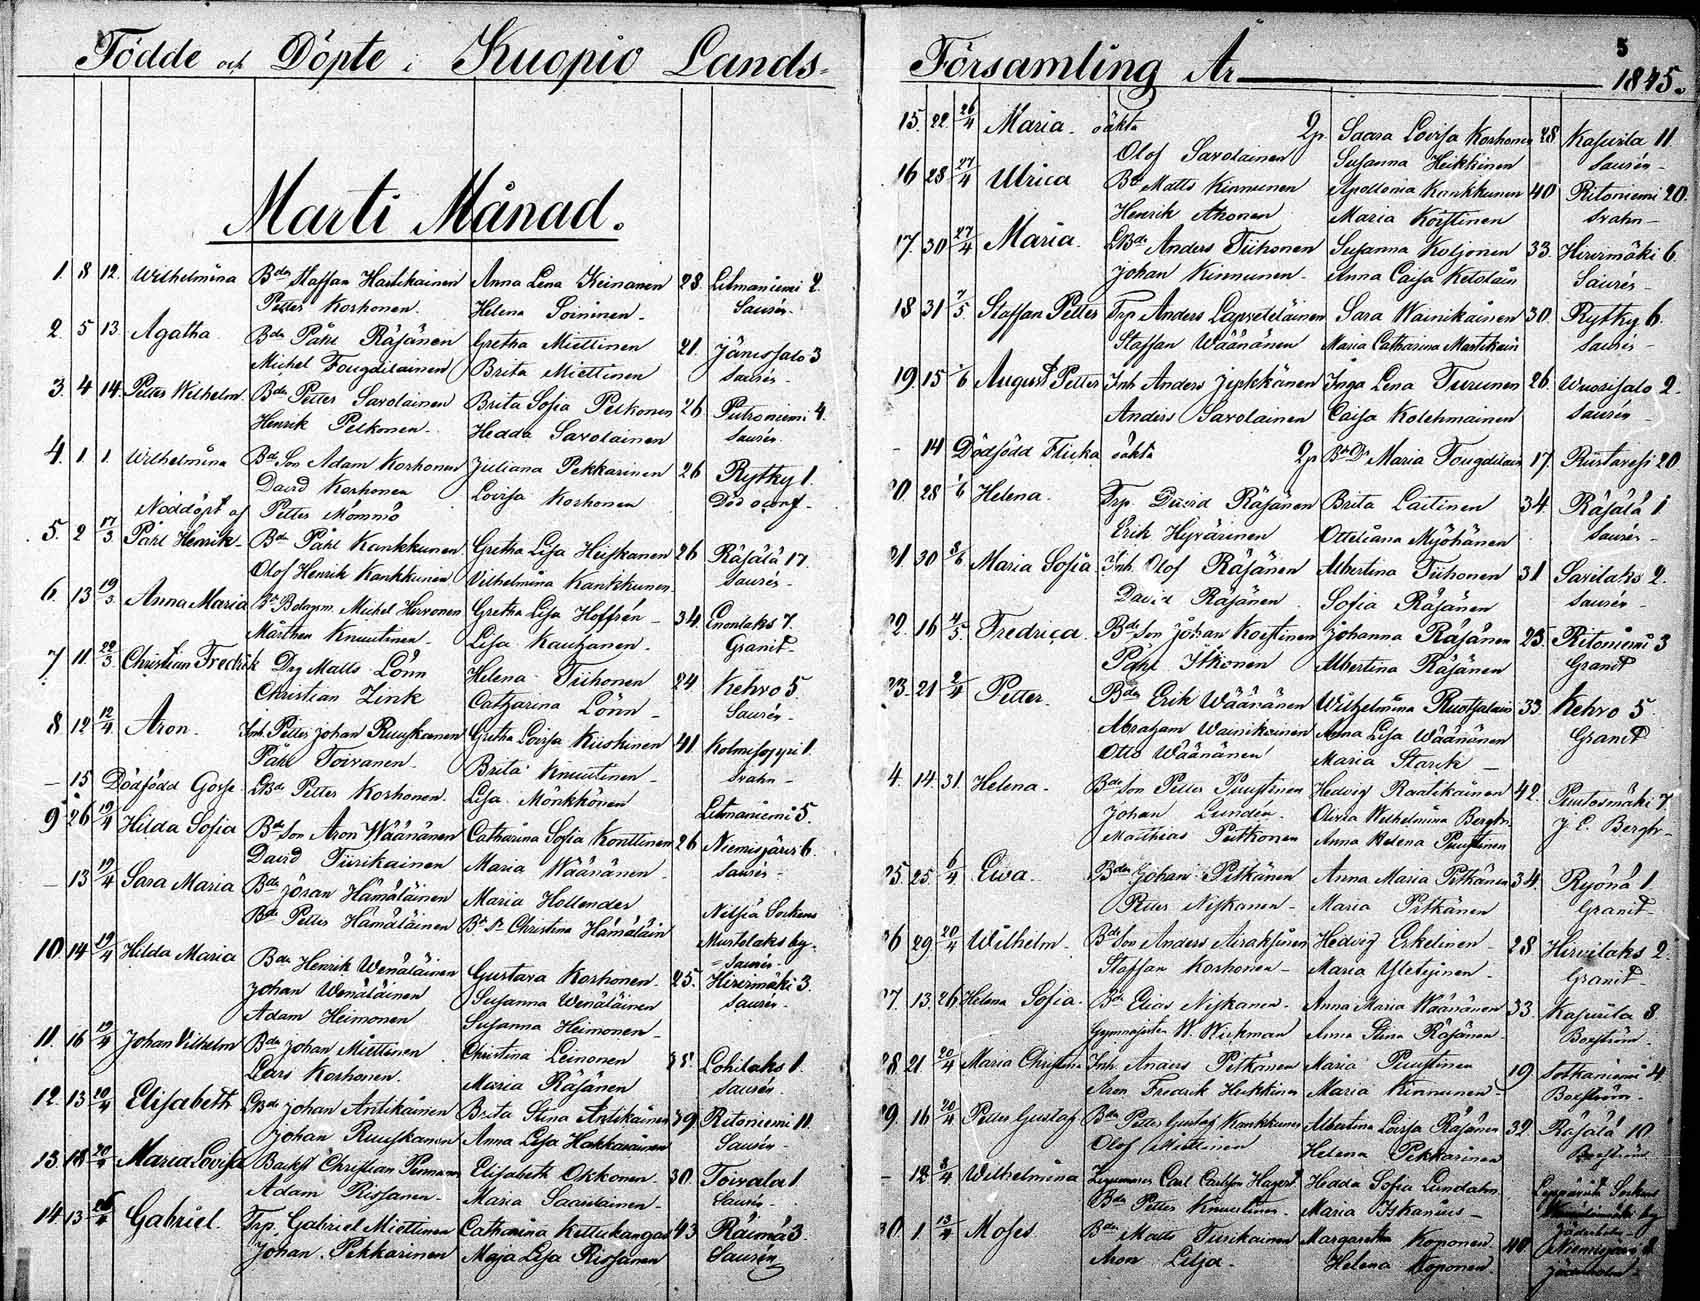 Födde och Döpte i Kuopio Lands=
Marti Månad.
1. 8 12. Wilhelmina Bdn Staffan Hartikainen Anna Lena Keinänen 28. Litmaniemi 2.
Petter Korhonen. Helena Soininen - Saurén -
2. 5 13. Agatha Bdn Påhl Räsänen Gretha Miettinen 21. Jänissalo 3
Michel Fougdilainen Brita Miettinen Saurén -
3. 4 14. Petter Wilhelm. Bdn Petter Savolainen Brita Sofia Pelkonen 26 Putroniemi 4.
Henrik Pelkonen. Hedda Savolainen Saurén.
4. 1. 1. Wilhelmina Bd Son Adam Korhonen Juliana Pekkarinen 26 Rytky 1.
David Korhonen Lovisa Korhonen Död odöpt -
Nöddöpt af Petter Mömmö
5. 2 17/3 Påhl Henrik - Bdn Påhl Kankkunen Gretha Lisa Heiskanen 26 Räsälä 17.
Olof Henrik Kankkunen Vilhelmina Kankkunen Saurén -
6. 13 19/3 Anna Maria Michel Hirvonen Gretha Lisa Hoffrén - 34. Enonlaks 7.
Mårthen Knuutinen Lisa Kauhanen - Granit -
7 11 22/3 Christian Fredrik Drg Matts Lönn Helena Tiihonen 24 Kehvo 5.
Christian Link Catharina Lönn - Saurén -
8 12 12/4 Aron. Inh. Petter Johan Ruuskanen Gretha Lovisa Kiiskinen 41 Kolmisoppi 1.
Påhl Toivanen. Brita Knuutinen - Svahn -
- 15 Dödfödd Gosse LBd Petter Korhonen. Lisa Mönkkönen Litmaniemi 5.
9 26 19/4 Hilda Sofia Bd Son Aron Wäänänen Catharina Sofia Konttinen 26 Niemisjärvi 6
David Tiirikainen Maria Wäänänen - Saurén -
- 13 19/4 Sara Maria Bdn Göran Hämäläinen Maria Hollender Nilsiä Sockens
Bdn Petter Hämäläinen Christina Hämäläin Murtolaks by.
10 14 19/4 Hilda Maria Bdn Henrik Wenäläinen Gustava Korhonen - 25. Hirvimäki 3.
Johan Wenäläinen Susanna Wenäläinen Saurén -
Adam Heimonen Susanna Heimonen -
11. 16 19/4 Johan Vilhelm Bdn Johan Miettinen Christina Leinonen 38. Lohilaks 1.
Lars Korhonen. Maria Räsänen Saurén
12. 13 20/4 Elisabeth LBd Johan Antikainen Brita Stina Antikainen 39 Ritoniemi 11.
Johan Ruuskanen Anna Lisa Hakkarainen Saurén -
13. 18 20/4 Maria Lovisa Christian Elisabeth Okkonen - 30. Toivala 1
Adam Rissanen - Maria Saastainen - Saurén -
14. 13 26/4 Gabriel. Trp. Gabriel Miettinen Catharina Kettukangas 43 Räimä 3.
Johan Pekkarinen Maja Lisa Rissanen Saurén
Församling År 1845.
5
15. 22. 26/4 Maria. oäkta Qp. Saara Lovisa Korhonen 28 Kasurila 11
Olof Savolainen Susanna Heikkinen Saurén -
16 28 27/4 Ulrica Bdn Matts Kinnunen Apollonia Kankkunen 40 Ritoniemi 20.
Henrik Ahonen Maria Koistinen Svahn -
17. 30 27/4 Maria. LBdn Anders Tiihonen Susanna Koljonen 33. Hirvimäki 6.
Johan Kinnunen - Anna Caisa Ketolain Saurén -
18 31 7/5 Staffan Petter Trp Anders Lapveteläinen Sara Wainikainen 30. Rytky 6.
Staffan Wäänänen Maria Catharina Martikain Saurén -
19. 15 1/6 August Petter Inh Anders Jeskkänen Inga Lena Turunen 26. Wuorisalo 2.
Anders Savolainen Caisa Kolehmainen Saurén
- 14 Dödfödd Flicka oäkta Qp Bd Dr Maria Fougdilain 17. Rustavesi 20
20. 28 1/6 Helena. Trp. David Räsänen Brita Laitinen 34. Räsälä 1
Erik Hyvärinen Otteliana Myöhänen Saurén -
21 30 8/6 Maria Sofia Inh. Olof Räsänen Albertina Tiihonen 31 Savilaks 2.
David Räsänen Sofia Räsänen Saurén -
22. 16 4/5 Fredrica. Bd Son Johan Koistinen Johanna Räsänen 23. Ritoniemi 3
Påhl Itkonen Albertina Räsänen Granit
23. 21 2/4 Petter. Bdn Erik Wäänänen Wilhelmina Ruotsalain 33. Kehvo 5
Abraham Wainikainen Anna Lisa Wäänänen Granit
Otto Wäänänen Maria Starck -
4. 14 31. Helena - Bd Son Petter Puustinen Hedvig Raatikainen 42. Puutosmäki 7
Johan Lundén. Olivia Wilhelmina Bergh. J. E. Bergh -
Matthias Pitkonen Anna Helena Puustinen
25. 25 6/4 Ewa. Bdn Johan Pitkänen Anna Maria Pitkänen 34. Ryönä 1
Petter Niskanen - Maria Pitkänen Granit -
26 29 20/4 Wilhelm. Bd Son Anders Airaksinen Hedvig Eskelinen - 28 Hirvilaks 2.
Staffan Korhonen - Maria Yletyinen - Granit -
27. 13. 26 Helena Sofia. Bd Elias Niskanen - Anna Maria Wäänänen 33. Kasurila 8
W. Wickman Anna Stina Räsänen - Boxström -
28. 21. 20/4 Maria Christina Inh Anders Pitkänen Maria Puustinen 19 Sotkaniemi 4
Aron Fredrik Heikkinen Maria Kinnunen - Boxström -
29. 16 20/4 Petter Gustaf Bdn Petter Gustaf Kankkunen Albertina Lovisa Räsänen 32 Räsälä 10
Olof Miettinen Helena Pekkarinen Boxström
- 12 3/4 Wilhelmina Carl Carlsson Hedda Sofia Lundahn Leppävirta Sockens
Bdn Petter Knuutinen. Maria Iskanius - by
30 1. 13/4 Moses Bdn Matts Tiirikainen Margaretha Koponen. 40. Niemisjärvi 8
Aron Lilja. Helena Koponen.